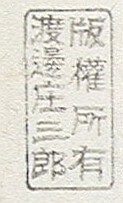 版權所有
渡邊庄三郎